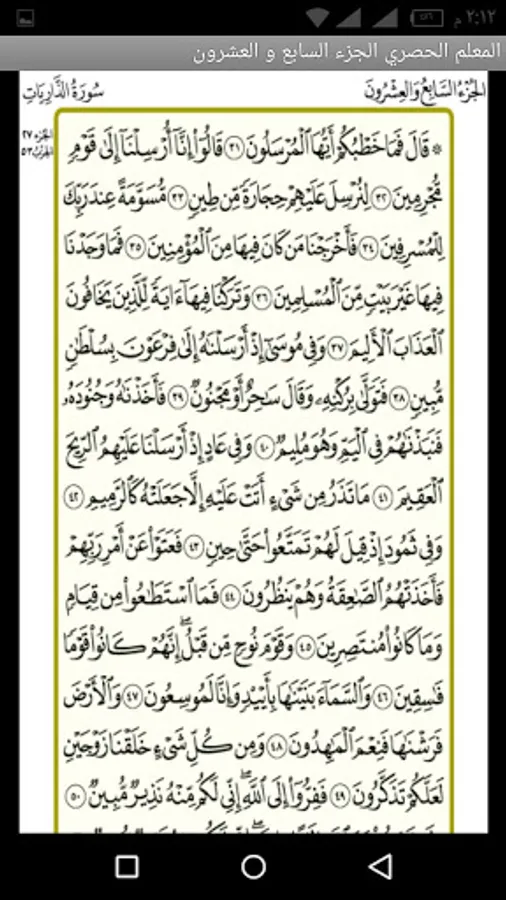 ٢:١٢ م
المعلم الحصري الجزء السابع و العشرون
الجُزْءُ السَّابِعُ وَالعِشْرُونَ
سُورَةُ الذَّارِيَاتِ
الجزء ٢٧
الحزب ٥٣
۞ قَالَ فَمَا خَطْبُكُمْ أَيُّهَا الْمُرْسَلُونَ ٣١ قَالُوا إِنَّا أُرْسِلْنَا إِلَى قَوْمٍ
مُجْرِمِينَ ٣٢ لِنُرْسِلَ عَلَيْهِمْ حِجَارَةً مِنْ طِينٍ ٣٣ مُسَوَّمَةً عِنْدَ رَبِّكَ
لِلْمُسْرِفِينَ ٣٤ فَأَخْرَجْنَا مَنْ كَانَ فِيهَا مِنَ الْمُؤْمِنِينَ ٣٥ فَمَا وَجَدْنَا
فِيهَا غَيْرَ بَيْتٍ مِنَ الْمُسْلِمِينَ ٣٦ وَتَرَكْنَا فِيهَا ءَايَةً لِلَّذِينَ يَخَافُونَ
الْعَذَابَ الْأَلِيمَ ٣٧ وَفِي مُوسَى إِذْ أَرْسَلْنَٰهُ إِلَى فِرْعَوْنَ بِسُلْطَٰنٍ
مُبِينٍ ٣٨ فَتَوَلَّى بِرُكْنِهِ وَقَالَ سَٰحِرٌ أَوْ مَجْنُونٌ ٣٩ فَأَخَذْنَٰهُ وَجُنُودَهُ
فَنَبَذْنَٰهُمْ فِي الْيَمِّ وَهُوَ مُلِيمٌ ٤٠ وَفِي عَادٍ إِذْ أَرْسَلْنَا عَلَيْهِمُ الرِّيحَ
الْعَقِيمَ ٤١ مَا تَذَرُ مِنْ شَيْءٍ أَتَتْ عَلَيْهِ إِلَّا جَعَلَتْهُ كَالرَّمِيمِ ٤٢
وَفِي ثَمُودَ إِذْ قِيلَ لَهُمْ تَمَتَّعُوا حَتَّى حِينٍ ٤٣ فَعَتَوْا عَنْ أَمْرِ رَبِّهِمْ
فَأَخَذَتْهُمُ الصَّٰعِقَةُ وَهُمْ يَنْظُرُونَ ٤٤ فَمَا اسْتَطَٰعُوا مِنْ قِيَامٍ
وَمَا كَانُوا مُنْتَصِرِينَ ٤٥ وَقَوْمَ نُوحٍ مِنْ قَبْلُ إِنَّهُمْ كَانُوا قَوْمًا
فَٰسِقِينَ ٤٦ وَالسَّمَاءَ بَنَيْنَٰهَا بِأَيْيْدٍ وَإِنَّا لَمُوسِعُونَ ٤٧ وَالْأَرْضَ
فَرَشْنَٰهَا فَنِعْمَ الْمَٰهِدُونَ ٤٨ وَمِنْ كُلِّ شَيْءٍ خَلَقْنَا زَوْجَيْنِ
لَعَلَّكُمْ تَذَكَّرُونَ ٤٩ فَفِرُّوا إِلَى اللَّهِ إِنِّي لَكُمْ مِنْهُ نَذِيرٌ مُبِينٌ ٥٠